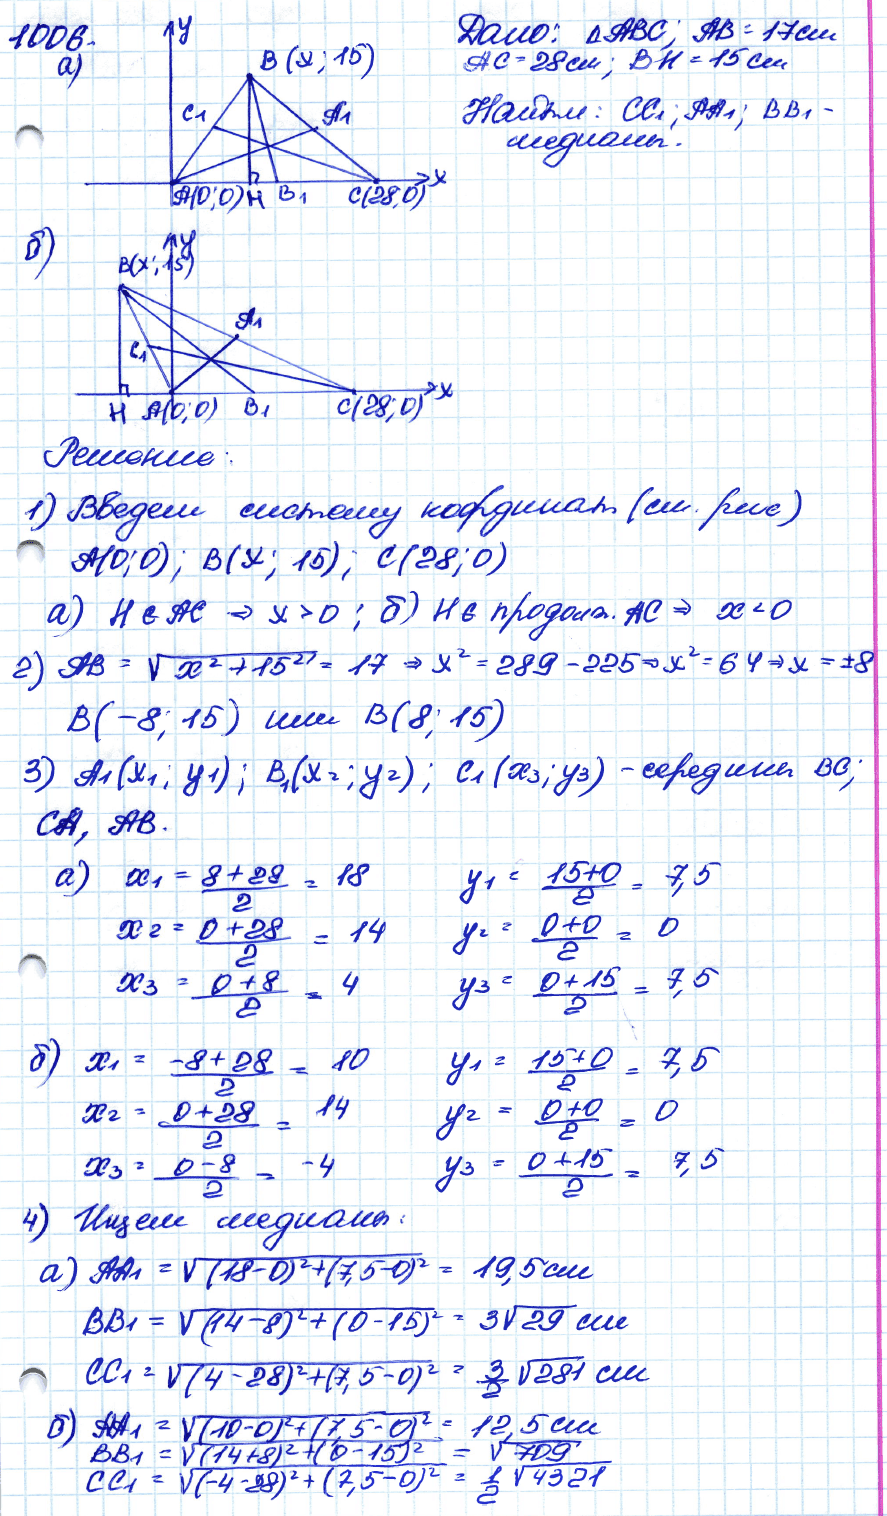 1006.
а)
y
B(x; 15)
C₁
A₁
A(0;0) H B₁ C(28;0)
x
Дано: ΔABC; AB = 17см
AC = 28см; BH = 15см
Найти: CC₁; AA₁; BB₁ -
медианы.
б)
y
B(x; 15)
A₁
C₁
H A(0;0) B₁ C(28;0)
x
Решение:
1) Введем систему координат (см. рис)
A(0;0); B(x; 15); C(28; 0)
а) H ∈ AC ⇒ x > 0; б) H ∈ продолж. AC ⇒ x < 0
2) AB = √(x² + 15²) = 17 ⇒ x² = 289 - 225 ⇒ x² = 64 ⇒ x = ±8
B(-8; 15) или B(8; 15)
3) A₁(x₁; y₁); B₁(x₂; y₂); C₁(x₃; y₃) - середины BC;
CA, AB.
а) x₁ = (8+28)/2 = 18 y₁ = (15+0)/2 = 7,5
x₂ = (0+28)/2 = 14 y₂ = (0+0)/2 = 0
x₃ = (0+8)/2 = 4 y₃ = (0+15)/2 = 7,5
б) x₁ = (-8+28)/2 = 10 y₁ = (15+0)/2 = 7,5
x₂ = (0+28)/2 = 14 y₂ = (0+0)/2 = 0
x₃ = (0-8)/2 = -4 y₃ = (0+15)/2 = 7,5
4) Ищем медианы:
а) AA₁ = √((18-0)²+(7,5-0)²) = 19,5см
BB₁ = √((14-8)²+(0-15)²) = 3√29 см
CC₁ = √((4-28)²+(7,5-0)²) = 3/2 √281 см
б) AA₁ = √((10-0)²+(7,5-0)²) = 12,5см
BB₁ = √((14+8)²+(0-15)²) = √709
CC₁ = √((-4-28)²+(7,5-0)²) = 1/2 √4321